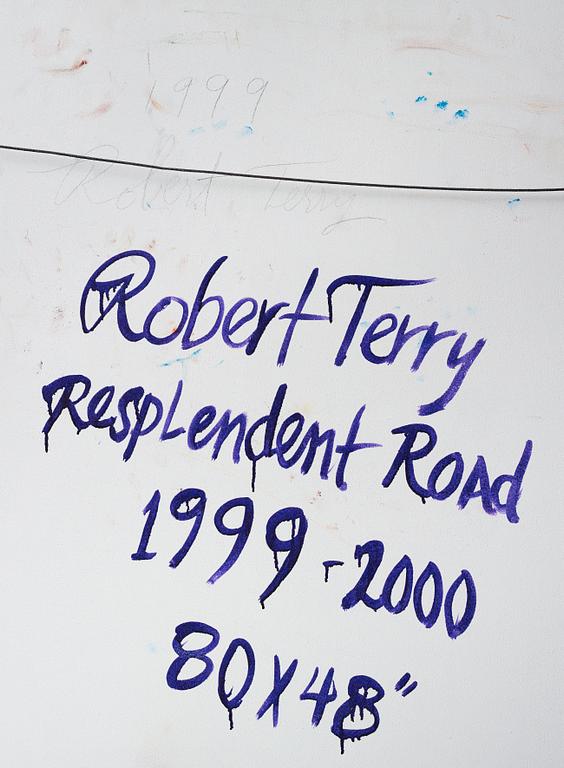 1999
Robert Terry
Robert Terry
Resplendent Road
1999-2000
80x48"